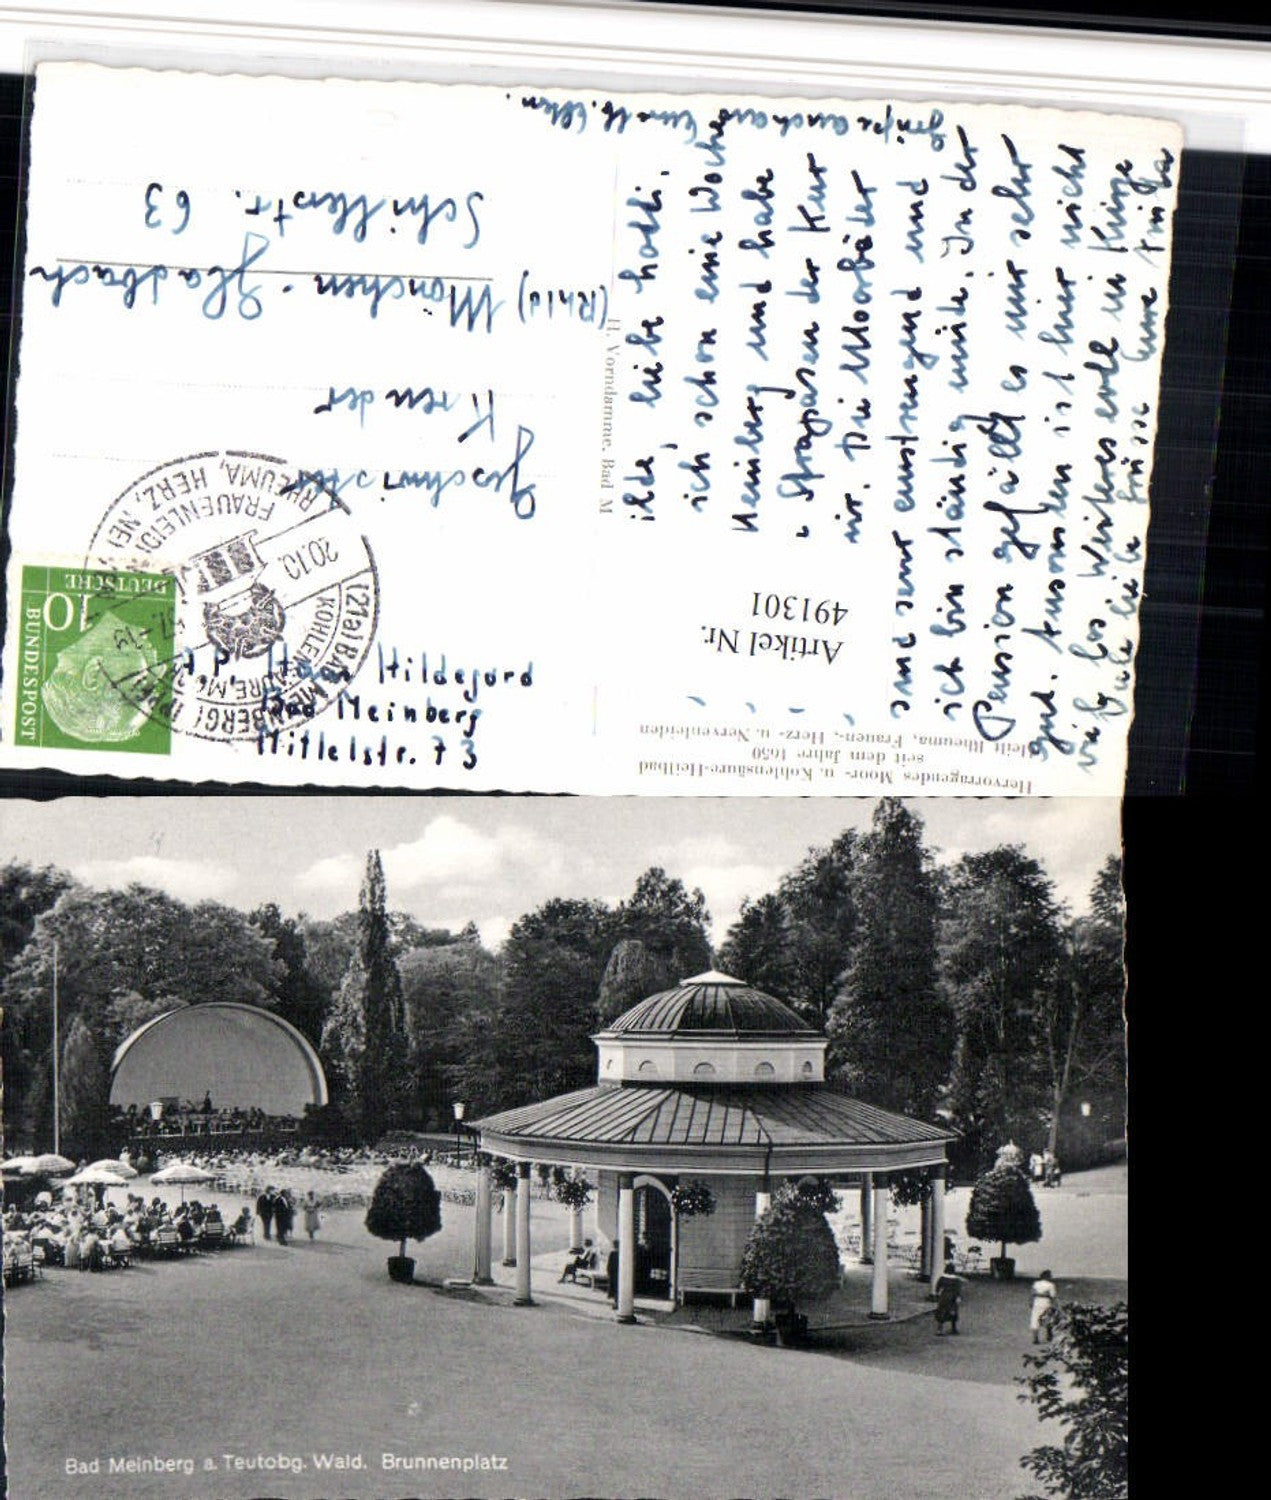 Hervorragendes Moor- u. Kohlensäure-Heilbad
seit dem Jahre 1650
heilt Rheuma, Frauen-, Herz- u. Nervenleiden
Artikel Nr.
491301
liebe Hotti,
ich schon eine Woche
Meinberg und habe
Strapasen der Kur
Die Moorbäder
sind sehr anstrengend und
ich bin ständig müde. In der
Pension gefällt es mir sehr
gut. Ansonsten ist hier nicht
viel los. Weiteres evtl. in Kürze
Viele liebe Grüsse Eure Inga
Grüße auch an Eure lb. Eltern.
H. Vorndamme, Bad M
DEUTSCHE
BUNDESPOST
10
(21a) BAD MEINBERG (LIPPE)
KOHLENSÄURE, MOOR
RHEUMA, HERZ, NE
FRAUENLEIDEN
20.10.
Hildegard
Bad Meinberg
Mittelstr. 73
Geschwister
Kremer
(Rhld) München-Gladbach
Schillerstr. 63
Bad Meinberg a. Teutobg. Wald. Brunnenplatz